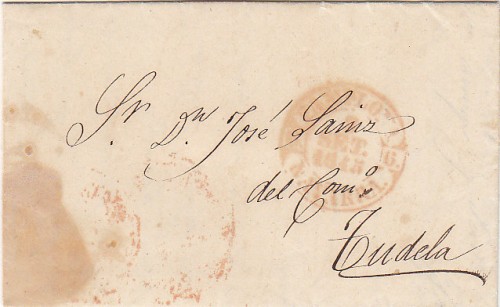 Sr. Dn José Sainz
del Como.
Tudela
1845